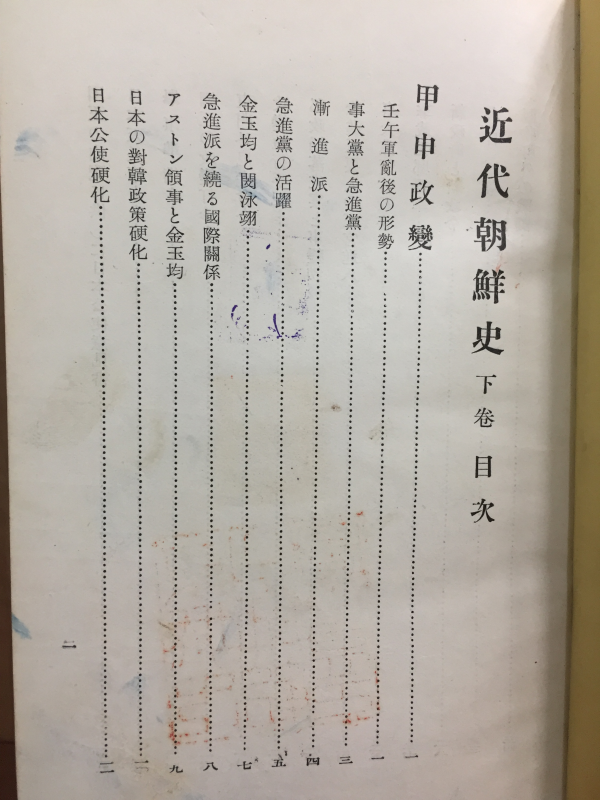 近代朝鮮史 下卷 目次
甲申政變……一
壬午軍亂後の形勢……一
事大黨と急進黨……三
漸進派……四
急進黨の活躍……五
金玉均と閔泳翊……七
急進派を繞る國際關係……八
アストン領事と金玉均……九
日本の對韓政策硬化
日本公使硬化